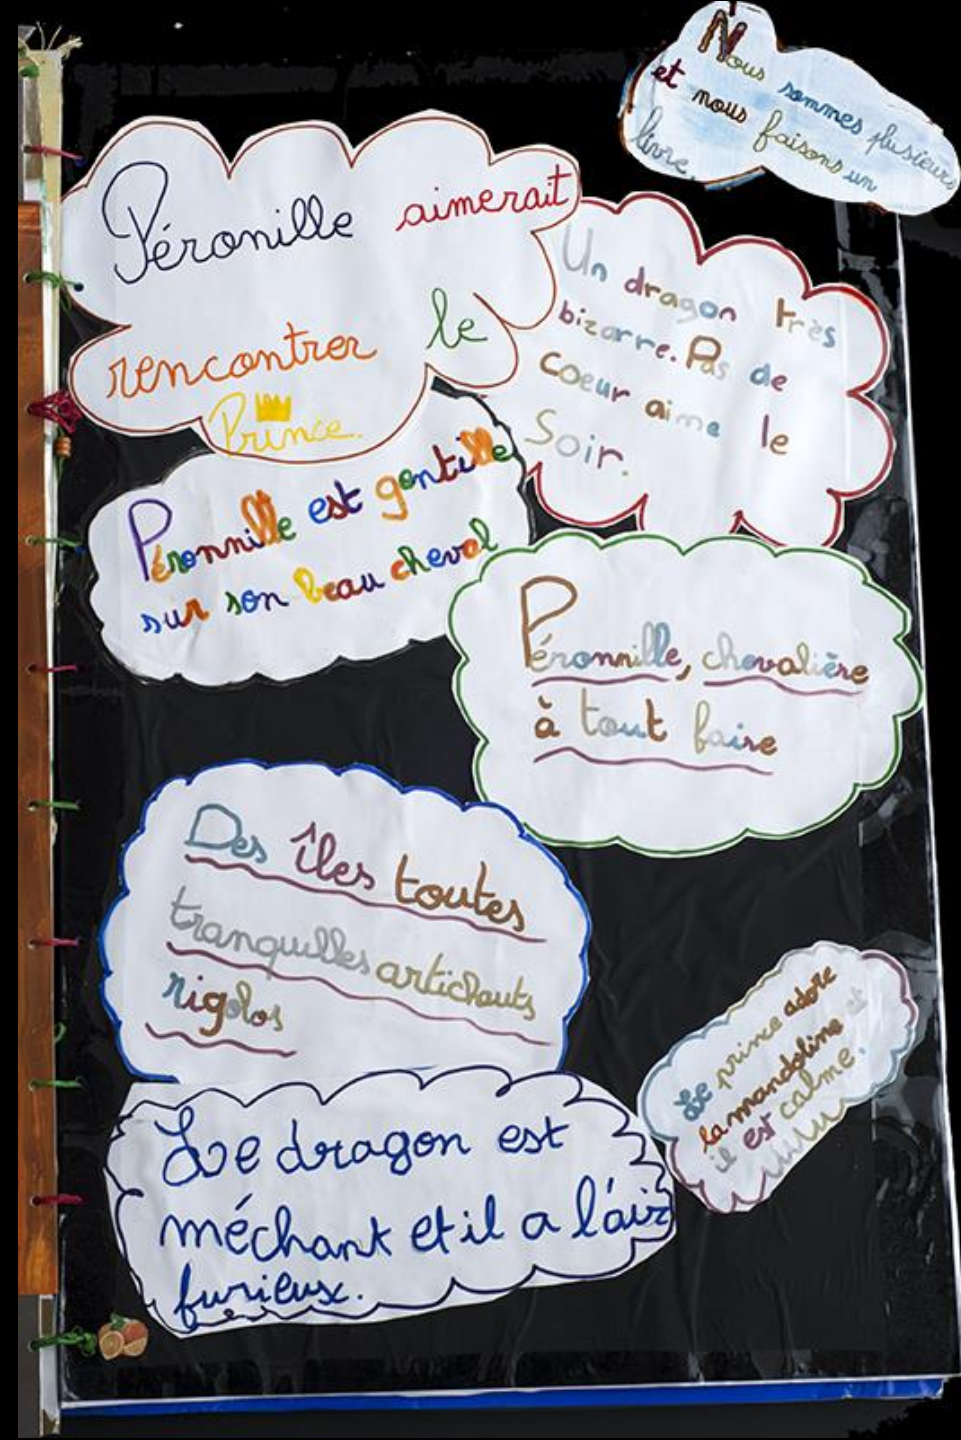 Nous sommes plusieurs
et nous faisons un
livre.
Péronille aimerait
rencontrer le
Prince.
Un dragon très
bizarre. Pas de
coeur aime le
Soir.
Péronnille est gentille
sur son beau cheval
Péronnille, chevalière
à tout faire
Des îles toutes
tranquilles artichauts
rigolos
Le prince adore
la mandoline et
il est calme.
Le dragon est
méchant et il a l'air
furieux.